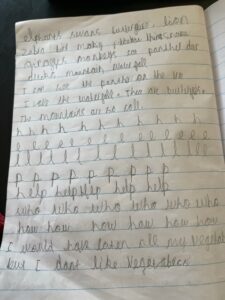 elphants swans butterflys, lion
Zebra
giraffes monkeys can panther dar
ducks mountain waterfall
I can see the panthe on the tre
I see the waterfall. Ther are butterflys.
The mountains are so tall.
h h h h h h h h h h
l l l l l l l l l l l l
l l l l l l l l l l l l
p p p p p p p p
help help help help help
who who who who who who
how how how how how how
I would have eaten all my vegetabl
but I dont like vegetables